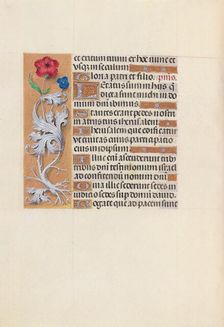 et catum nunc et hoc nunc et
vsq; in seculum.
Gloria patri et filio. psms.
Letatus sum in his que
dicta sunt michi in do
mum domini ibimus.
Stantes erant pedes nostri
in atrijs tuis iherusalem.
Iherusalem que edificatur
vt ciuitas cuius participatio
eius in idipsum.
Illuc enim ascenderunt tribus
tribus domini testimonium israel
ad confitendum nomini domini
Quia illic sederunt sedes in
iudicio sedes super domum d
Rogate que ad pacem sunt